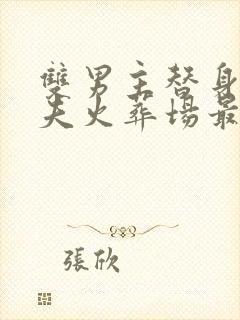 雙男主替身
夫火葬場最
張欣